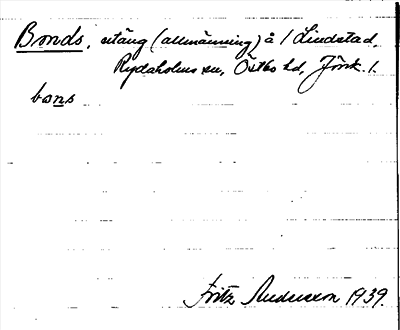 Bonds, utäng (allmänning) å 1 Lindstad,
Rydaholms sn, Östbo hd, Jönk. l.
bons
Fritz Anderson 1939.